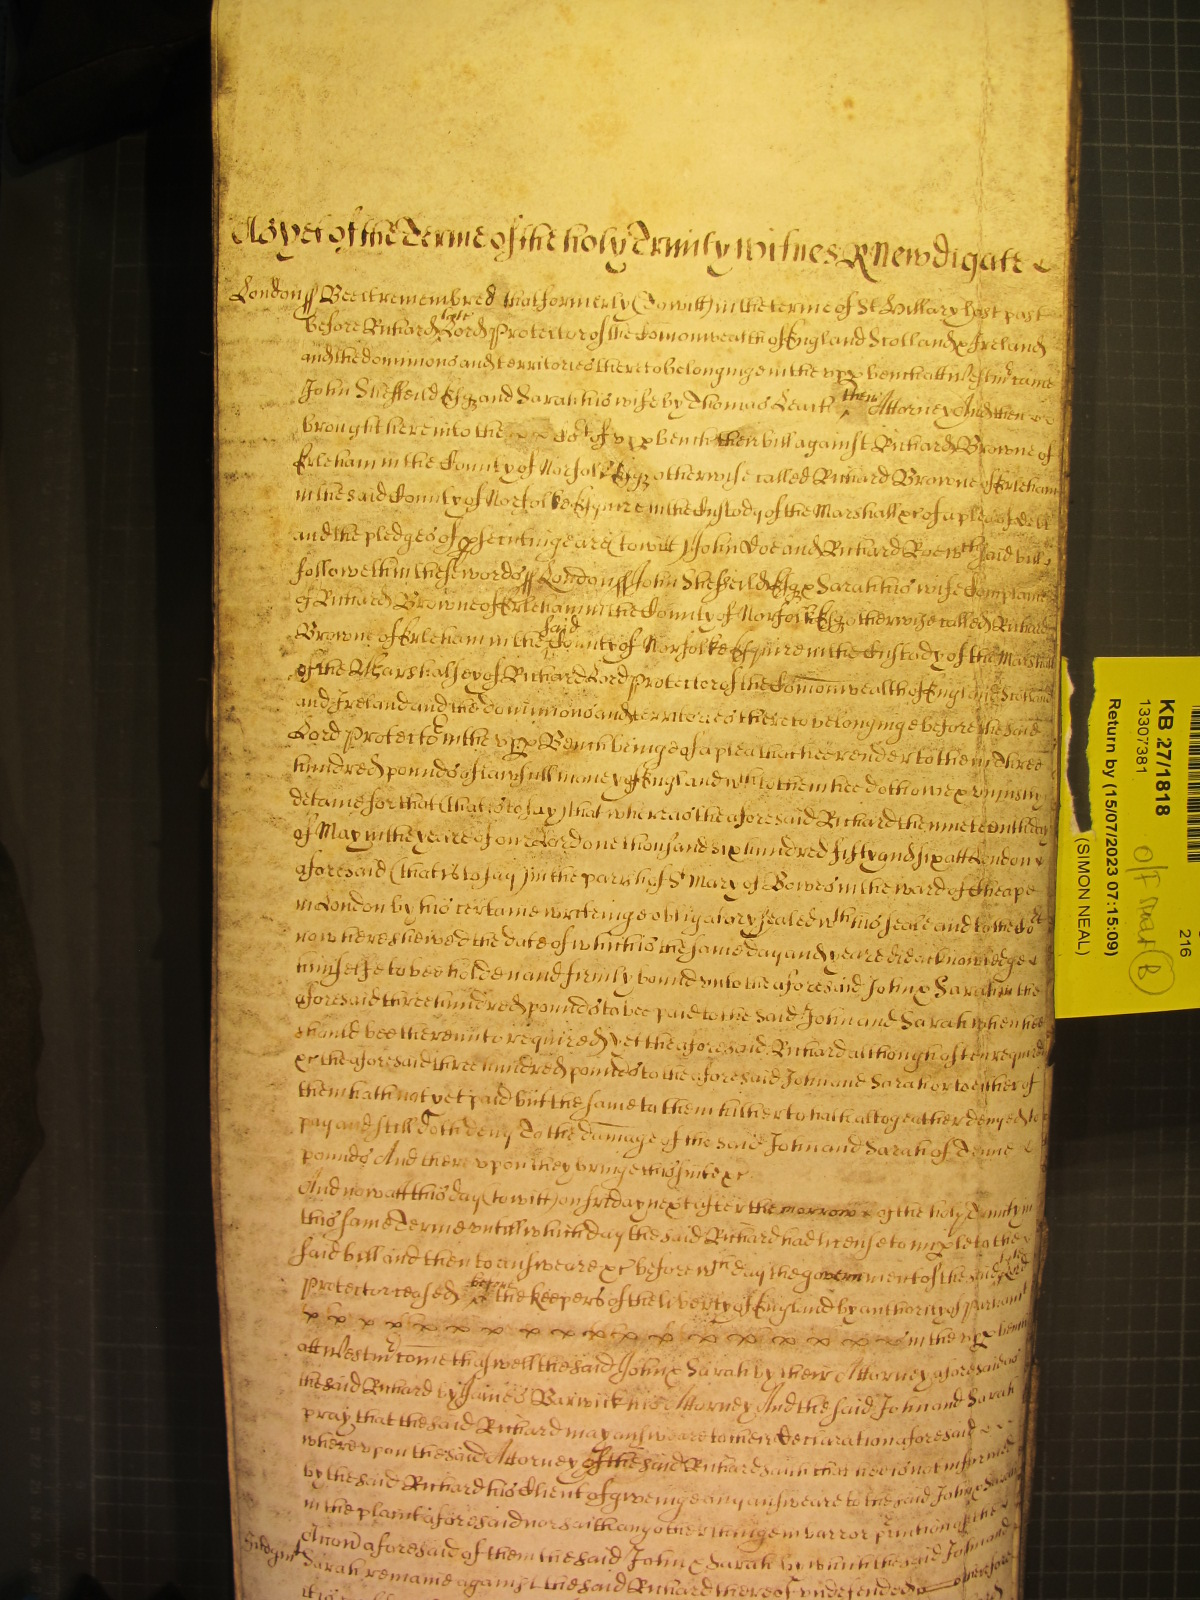 As yet of the Terme of the holy Trinity witnes R Newdigate
London ss Bee it remembred that formerly (to witt) in the terme of St Hillary last past
before Richard late Lord Protector of the Comonwealth of England Scotland & Ireland
and the dominions and territories thereto belonginge in the upp bench att Westmr came
John Sheffeild Esqr and Sarah his wife by Thomas Leach their Attorney And then
brought here into the Cort of upp bench their bill against Richard Browne of
Erleham in the County of Norfolk Esqr otherwise called Richard Browne of Erleham
in the said County of Norfolke Esquire in the Custody of the Marshall &c of a plea of debt
and the pledges of psecutinge are (to witt) John Doe and Richard Roe wch said bill
followeth in these words ss London ss John Sheffeild Esqr & Sarah his wife complaine
of Richard Browne of Erleham in the County of Norfolk Esqr otherwise called Richard
Browne of Erleham in the said County of Norfolke Esquire in the Custady of the Marshall
of the Marshalsey of Richard Lord Protector of the Comonwealth of England Scotland
and Ireland and the dominions and territories thereto belonginge before the said
Lord Protector in the upp Bench beinge of a plea that hee render to them three
hundred pounds of lawfull money of England wch to them hee doth owe & uniustly
detaine for that (that is to say) that whereas the aforesaid Richard the nineteenth day
of May in the yeare of our Lord one thousand six hundred fifty and six att London
aforesaid (that is to say) in the parish of St Mary of Bowes in the ward of Cheape
in London by his certaine writeinge obligatory sealed wth his seale and to the Cort
now here shewed the date of which is the same day and yeare did acknowledge
himselfe to bee holden and firmly bound unto the aforesaid John & Sarah in the
aforesaid three hundred pounds to bee paid to the said John and Sarah when hee
should bee thereunto required) Yet the aforesaid Richard although often required
&c the aforesaid three hundred pounds to the aforesaid John and Sarah or to either of
them hath not yet paid but the same to them hitherto hath altogeather denyed to
pay and still doth deny To the damage of the said John and Sarah of Tenne
pounds And thereupon they bringe this suite &c
And now att this day (to witt) on friday next after the morrow of the holy Trinity in
this same Terme untill which day the said Richard had license to imple to the
said bill and then to answeare &c before wch day the government of the said late Lord
Protector ceased before the keepers of the liberty of England by authority of parliamt
x x x x x x x x x x x x x x x x x in the upp bench
att Westmr come thaswell the said John & Sarah by their Attorney aforesaid as
the said Richard by James Barwick his Attorney And the said John and Sarah
pray that the said Richard may answeare to their declaration aforesaid
whereupon the said Attorney of the said Richard saith that hee is not informed
by the said Richard his Client of giveinge any answeare to the said John & Sarah
in the plaint aforesaid nor saith any other thinge in barr or
Accon aforesaid of them the said John & Sarah by which the said John and
Sarah remaine against the said Richard thereof undefended Therefore
KB 27/1818
13307381
Return by (15/07/2023 07:15:09)
(SIMON NEAL)
216